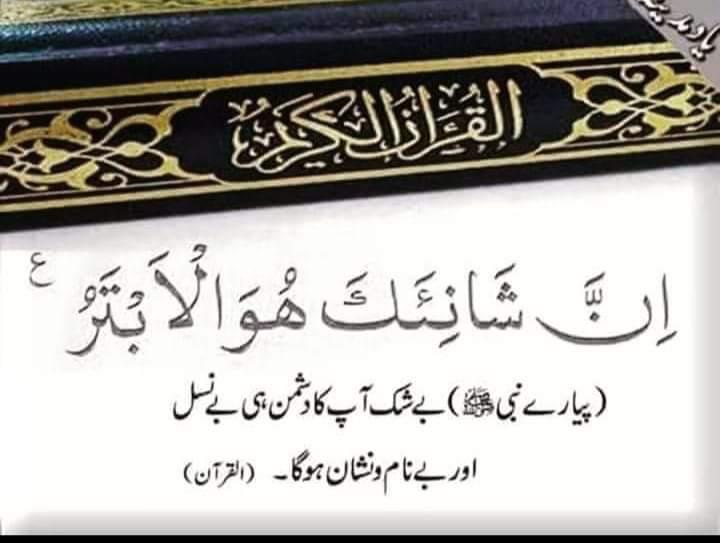 یاد مدینہ
القرآن الكريم
اِنَّ شَانِئَكَ هُوَ الْاَبْتَرُ ع
(پیارے نبی ﷺ) بے شک آپ کا دشمن ہی بے نسل
اور بے نام و نشان ہوگا۔ (القرآن)